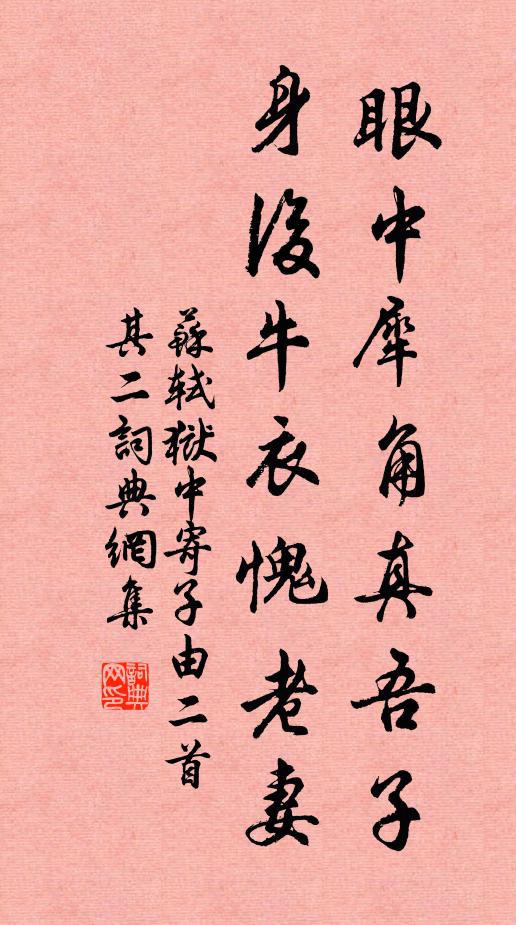 眼中犀角真吾子
身後牛衣愧老妻
蘇軾獄中寄子由二首
其二詞典網集
詞典
网印